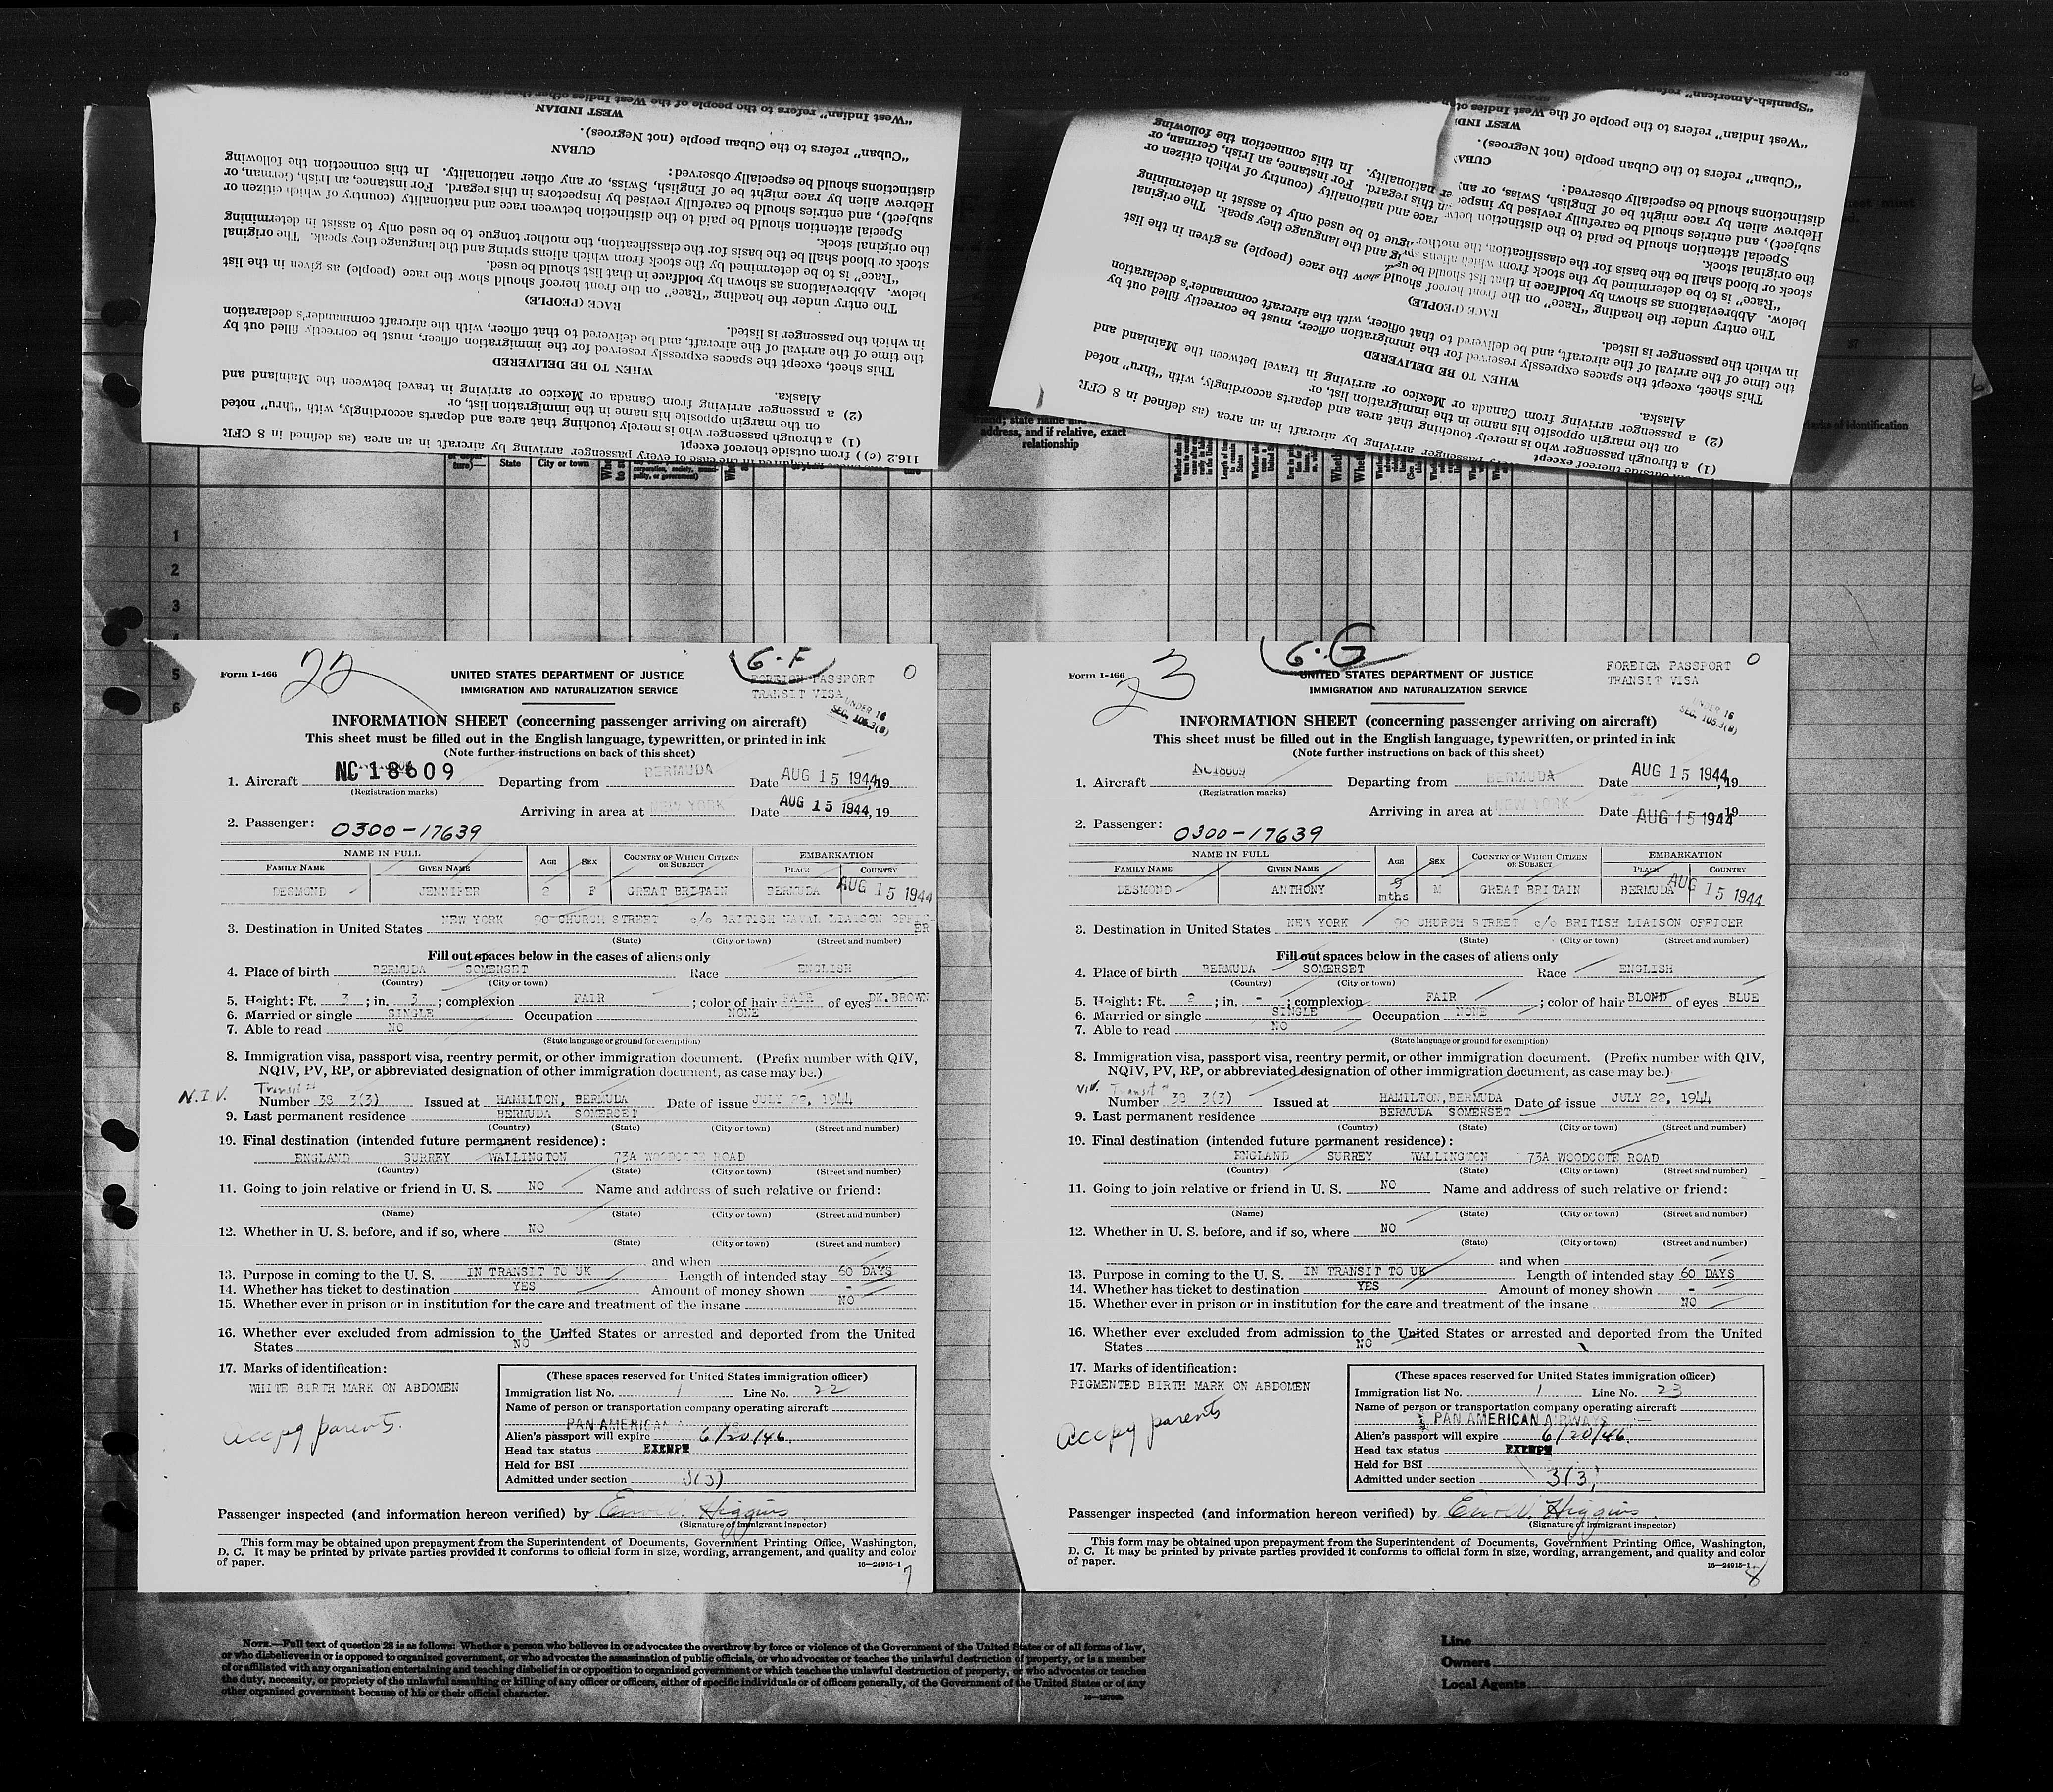 "West Indian" refers to the people of the West Indies other than
WEST INDIAN
"Cuban" refers to the Cuban people (not Negroes).
CUBAN
distinctions should be especially observed:
Hebrew alien by race might be of English, Swiss, or any other nationality. In this connection the following
subject), and entries should be carefully revised by inspectors in this regard. For instance, an Irish, German, or
Special attention should be paid to the distinction between race and nationality (country of which citizen or
the original stock.
stock or blood shall be the basis for the classification, the mother tongue to be used only to assist in determining
"Race" is to be determined by the stock from which aliens springs and the language they speak. The original
below. Abbreviations as shown by boldface in that list should be used.
The entry under the heading "Race" on the front hereof should show the race (people) as given in the list
RACE (PEOPLE)
in which the passenger is listed.
the time of the arrival of the aircraft, and be delivered to that officer, with the aircraft commander's declaration
This sheet, except the spaces expressly reserved for the immigration officer, must be correctly filled out by
WHEN TO BE DELIVERED
Alaska.
(2) a passenger arriving from Canada or Mexico or arriving in travel between the Mainland and
on the margin opposite his name in the immigration list, or
(1) a through passenger who is merely touching that area and departs accordingly, with "thru" noted
116.2 (c)) from outside thereof except
in the case of every passenger arriving by aircraft in an area (as defined in 8 CFR
"Spanish-American" refers to
"West Indian" refers to the people of the West Indies
WEST IND
"Cuban" refers to the Cuban people (not Negroes).
CUBA
distinctions should be especially observed:
Hebrew alien by race might be of English, Swiss, or any nationality. In this connection the following
subject), and entries should be carefully revised by inspec in this regard. For instance, an Irish, German, or
Special attention should be paid to the distinction betw race and nationality (country of which citizen or
the original stock.
stock or blood shall be the basis for the classification, the mother gue to be used only to assist in determining
"Race" is to be determined by the stock from which aliens and the language they speak. The original
below. Abbreviations as shown by boldface in that list should be
The entry under the heading "Race" on the front hereof should show the race (people) as given in the list
RACE (PEOPLE)
in which the passenger is listed.
the time of the arrival of the aircraft, and be delivered to that officer, with the aircraft commander's declaration
This sheet, except the spaces expressly reserved for the immigration officer, must be correctly filled out by
WHEN TO BE DELIVERED
Alaska.
(2) a passenger arriving from Canada or Mexico or arriving in travel between the Mainland and
on the margin opposite his name in the immigration list, or
(1) a through passenger who is merely touching that area and departs accordingly, with "thru" noted
outside thereof except
passenger arriving by aircraft in an area (as defined in 8 CFR
37
address, and if relative, exact
relationship
Marks of identification
ture)
State
City or town
1
2
3
5
6
22
6-F
0
Form I-466
UNITED STATES DEPARTMENT OF JUSTICE
IMMIGRATION AND NATURALIZATION SERVICE
FOREIGN PASSPORT
TRANSIT VISA
UNDER 16
SEC. 105.3(B)
INFORMATION SHEET (concerning passenger arriving on aircraft)
This sheet must be filled out in the English language, typewritten, or printed in ink
(Note further instructions on back of this sheet)
1. Aircraft NC 18609 Departing from BERMUDA Date AUG 15 1944, 19
(Registration marks)
Arriving in area at NEW YORK Date AUG 15 1944, 19
2. Passenger: 0300-17639
NAME IN FULL
FAMILY NAME GIVEN NAME AGE SEX COUNTRY OF WHICH CITIZEN OR SUBJECT EMBARKATION PLACE COUNTRY
DESMOND JENNIFER 2 F GREAT BRITAIN BERMUDA AUG 15 1944
3. Destination in United States NEW YORK 90 CHURCH STREET c/o BRITISH NAVAL LIAISON OFFICER
(State) (City or town) (Street and number)
Fill out spaces below in the cases of aliens only
4. Place of birth BERMUDA SOMERSET Race ENGLISH
(Country) (City or town)
5. Height: Ft. 3 ; in. 3 ; complexion FAIR ; color of hair FAIR of eyes DK.BROWN
6. Married or single SINGLE Occupation NONE
7. Able to read NO
(State language or ground for exemption)
8. Immigration visa, passport visa, reentry permit, or other immigration document. (Prefix number with QIV,
NQIV, PV, RP, or abbreviated designation of other immigration document, as case may be.)
N.I.V. Transit #
Number 38 3(3) Issued at HAMILTON, BERMUDA Date of issue JULY 22, 1944
9. Last permanent residence BERMUDA SOMERSET
(Country) (State) (City or town) (Street and number)
10. Final destination (intended future permanent residence):
ENGLAND SURREY WALLINGTON 73A WOODCOTE ROAD
(Country) (State) (City or town) (Street and number)
11. Going to join relative or friend in U. S. NO Name and address of such relative or friend:
(Name) (State) (City or town) (Street and number)
12. Whether in U. S. before, and if so, where NO
(State) (City or town) (Street and number)
and when
13. Purpose in coming to the U. S. IN TRANSIT TO UK Length of intended stay 60 DAYS
14. Whether has ticket to destination YES Amount of money shown -
15. Whether ever in prison or in institution for the care and treatment of the insane NO
16. Whether ever excluded from admission to the United States or arrested and deported from the United
States NO
17. Marks of identification:
WHITE BIRTH MARK ON ABDOMEN
Accpg parents.
(These spaces reserved for United States immigration officer)
Immigration list No. 1 Line No. 22
Name of person or transportation company operating aircraft
PAN AMERICAN
Alien's passport will expire 6/20/46
Head tax status EXEMPT
Held for BSI
Admitted under section 3(3)
Passenger inspected (and information hereon verified) by Higgins
(Signature of immigrant inspector)
This form may be obtained upon prepayment from the Superintendent of Documents, Government Printing Office, Washington,
D. C. It may be printed by private parties provided it conforms to official form in size, wording, arrangement, and quality and color
of paper.
16—24915-1
7
23
6-G
0
Form I-466
UNITED STATES DEPARTMENT OF JUSTICE
IMMIGRATION AND NATURALIZATION SERVICE
FOREIGN PASSPORT
TRANSIT VISA
UNDER 16
SEC. 105.3(B)
INFORMATION SHEET (concerning passenger arriving on aircraft)
This sheet must be filled out in the English language, typewritten, or printed in ink
(Note further instructions on back of this sheet)
1. Aircraft NC18609 Departing from BERMUDA Date AUG 15 1944, 19
(Registration marks)
Arriving in area at Date AUG 15 1944 19
2. Passenger: 0300-17639
NAME IN FULL
FAMILY NAME GIVEN NAME AGE SEX COUNTRY OF WHICH CITIZEN OR SUBJECT EMBARKATION PLACE COUNTRY
DESMOND ANTHONY 9 mths M GREAT BRITAIN BERMUDA AUG 15 1944
3. Destination in United States NEW YORK 90 CHURCH STREET c/o BRITISH LIAISON OFFICER
(State) (City or town) (Street and number)
Fill out spaces below in the cases of aliens only
4. Place of birth BERMUDA SOMERSET Race ENGLISH
(Country) (City or town)
5. Height: Ft. 2 ; in. - ; complexion FAIR ; color of hair BLOND of eyes BLUE
6. Married or single SINGLE Occupation NONE
7. Able to read NO
(State language or ground for exemption)
8. Immigration visa, passport visa, reentry permit, or other immigration document. (Prefix number with QIV,
NQIV, PV, RP, or abbreviated designation of other immigration document, as case may be.)
NIV. Transit #
Number 38 3(3) Issued at HAMILTON, BERMUDA Date of issue JULY 22, 1944
9. Last permanent residence BERMUDA SOMERSET
(Country) (State) (City or town) (Street and number)
10. Final destination (intended future permanent residence):
ENGLAND SURREY WALLINGTON 73A WOODCOTE ROAD
(Country) (State) (City or town) (Street and number)
11. Going to join relative or friend in U. S. NO Name and address of such relative or friend:
(Name) (State) (City or town) (Street and number)
12. Whether in U. S. before, and if so, where NO
(State) (City or town) (Street and number)
and when
13. Purpose in coming to the U. S. IN TRANSIT TO UK Length of intended stay 60 DAYS
14. Whether has ticket to destination YES Amount of money shown -
15. Whether ever in prison or in institution for the care and treatment of the insane NO
16. Whether ever excluded from admission to the United States or arrested and deported from the United
States NO
17. Marks of identification:
PIGMENTED BIRTH MARK ON ABDOMEN
Accpg parents
(These spaces reserved for United States immigration officer)
Immigration list No. 1 Line No. 23
Name of person or transportation company operating aircraft
PAN AMERICAN AIRWAYS
Alien's passport will expire 6/20/46
Head tax status EXEMPT
Held for BSI
Admitted under section 3(3)
Passenger inspected (and information hereon verified) by Higgins
(Signature of immigrant inspector)
This form may be obtained upon prepayment from the Superintendent of Documents, Government Printing Office, Washington,
D. C. It may be printed by private parties provided it conforms to official form in size, wording, arrangement, and quality and color
of paper.
16—24915-1
8
NOTE.—Full text of question 28 is as follows: Whether a person who believes in or advocates the overthrow by force or violence of the Government of the United States or of all forms of law,
or who disbelieves in or is opposed to organized government, or who advocates the assassination of public officials, or who advocates or teaches the unlawful destruction of property, or is a member
of or affiliated with any organization entertaining and teaching disbelief in or opposition to organized government or which teaches the unlawful destruction of property, or who advocates or teaches
the duty, necessity, or propriety of the unlawful assaulting or killing of any officer or officers, either of specific individuals or of officers generally, of the Government of the United States or of any
other organized government because of his or their official character.
Line
Owners
Local Agents